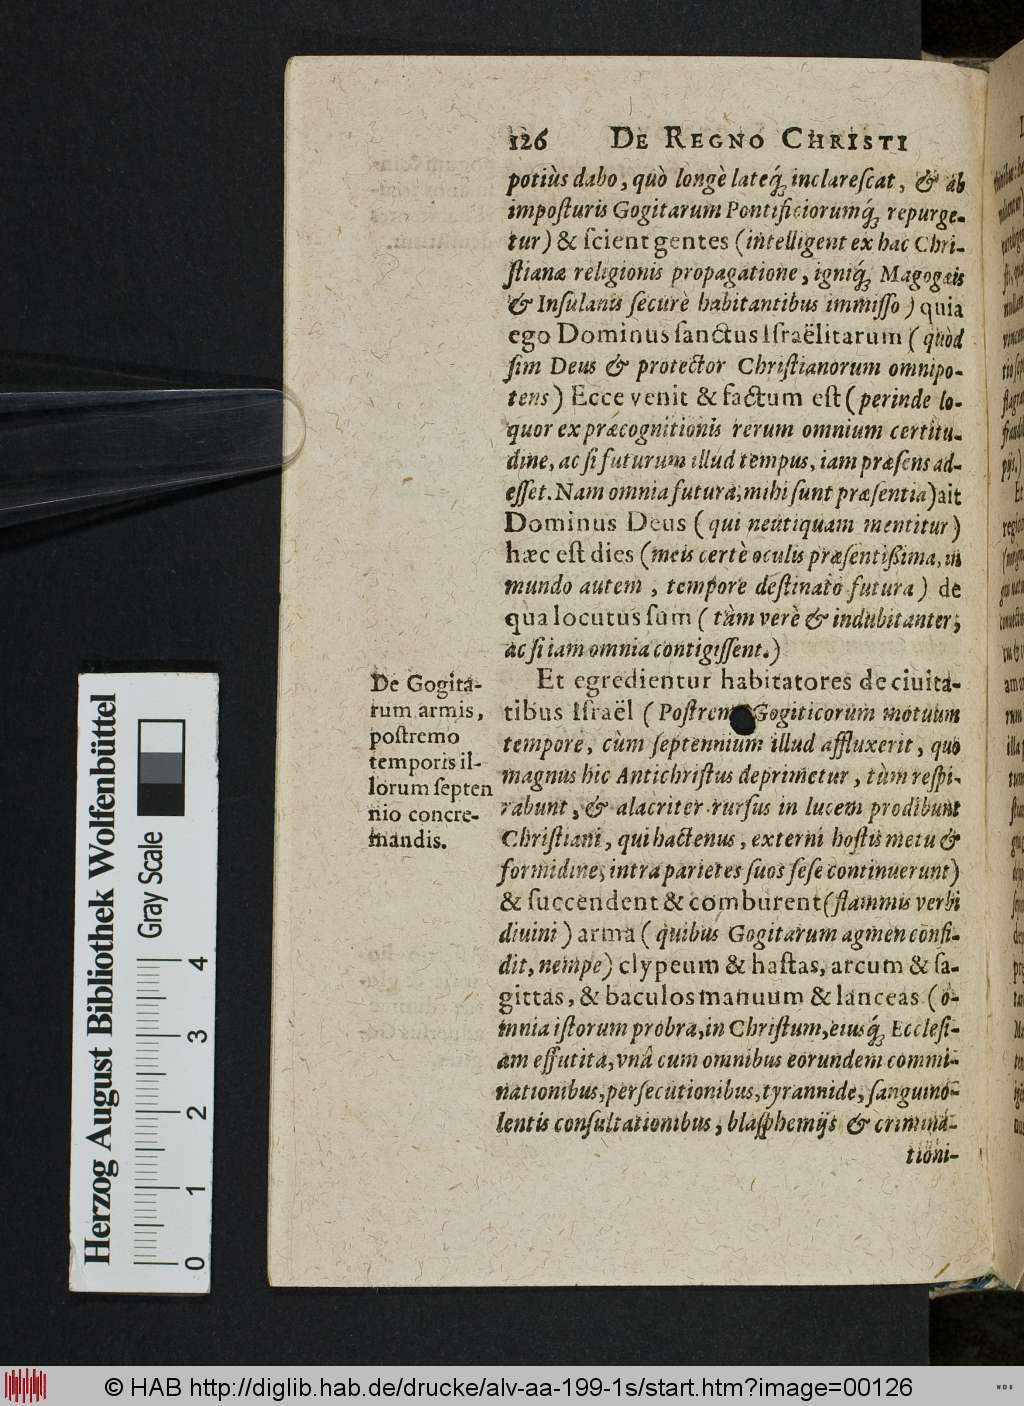 126 DE REGNO CHRISTI
potiùs dabo, quò longè lateq́; inclarescat, & ab
imposturis Gogitarum Pontificiorumq́; repurge-
tur) & scient gentes (intelligent ex hac Chri-
stianæ religionis propagatione, igniq́; Magogæis
& Insulanis securè habitantibus immisso) quia
ego Dominus sanctus Israëlitarum (quòd
sim Deus & protector Christianorum omnipo-
tens) Ecce venit & factum est (perinde lo-
quor ex præcognitionis rerum omnium certitu-
dine, ac si futurum illud tempus, iam præsens ad-
esset. Nam omnia futura, mihi sunt præsentia) ait
Dominus Deus (qui neutiquam mentitur)
hæc est dies (meis certè oculis præsentißima, in
mundo autem, tempore destinato futura) de
qua locutus sum (tàm verè & indubitanter,
ac si iam omnia contigissent.)
De Gogita-
rum armis,
postremo
temporis il-
lorum septen
nio concre-
mandis.
Et egredientur habitatores de ciuita-
tibus Israël (Postrem Gogiticorum motuum
tempore, cùm septennium illud affluxerit, quo
magnus hic Antichristus deprimetur, tùm respi-
rabunt, & alacriter rursus in lucem prodibunt
Christiani, qui hactenus, externi hostis metu &
formidine, intra parietes suos sese continuerunt)
& succendent & comburent (flammis verbi
diuini) arma (quibus Gogitarum agmen confi-
dit, nempe) clypeum & hastas, arcum & sa-
gittas, & baculos manuum & lanceas (o-
mnia istorum probra, in Christum, eiusq́; Ecclesi-
am effutita, vnâ cum omnibus eorundem commi-
nationibus, persecutionibus, tyrannide, sanguino-
lentis consultationibus, blasphemijs & crimina-
tioni-
Herzog August Bibliothek Wolfenbüttel
Gray Scale
0 1 2 3 4
© HAB http://diglib.hab.de/drucke/alv-aa-199-1s/start.htm?image=00126